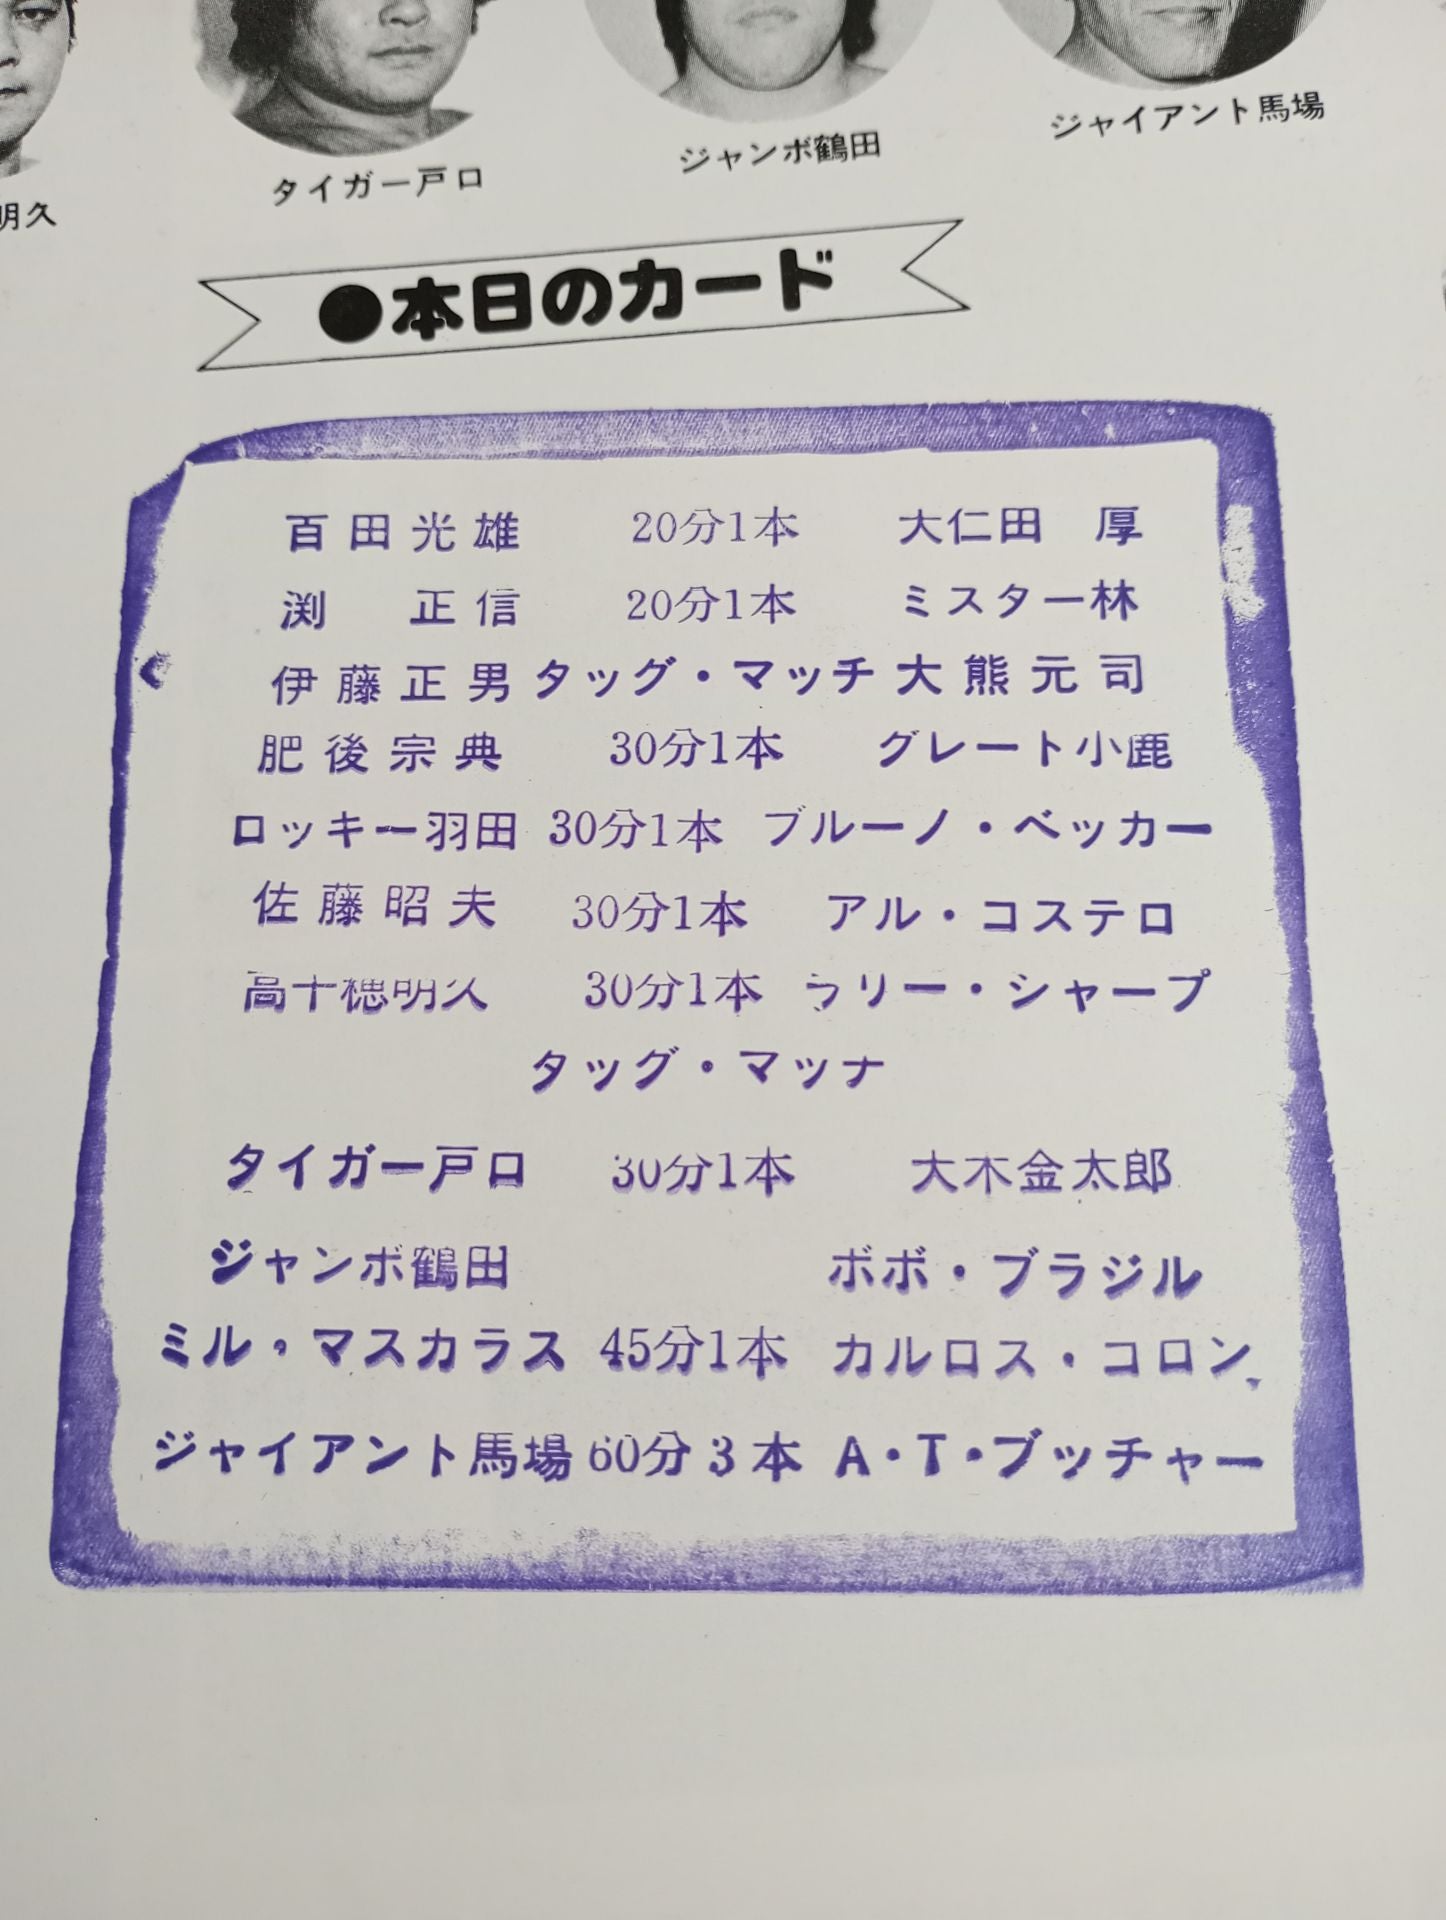 明久
タイガー戸口
ジャンボ鶴田
ジャイアント馬場
●本日のカード
百田光雄 20分1本 大仁田 厚
渕 正信 20分1本 ミスター林
伊藤正男 タッグ・マッチ 大熊元司
肥後宗典 30分1本 グレート小鹿
ロッキー羽田 30分1本 ブルーノ・ベッカー
佐藤昭夫 30分1本 アル・コステロ
高千穂明久 30分1本 ラリー・シャープ
タッグ・マッチ
タイガー戸口 30分1本 大木金太郎
ジャンボ鶴田 ボボ・ブラジル
ミル・マスカラス 45分1本 カルロス・コロン
ジャイアント馬場 60分3本 A・T・ブッチャー